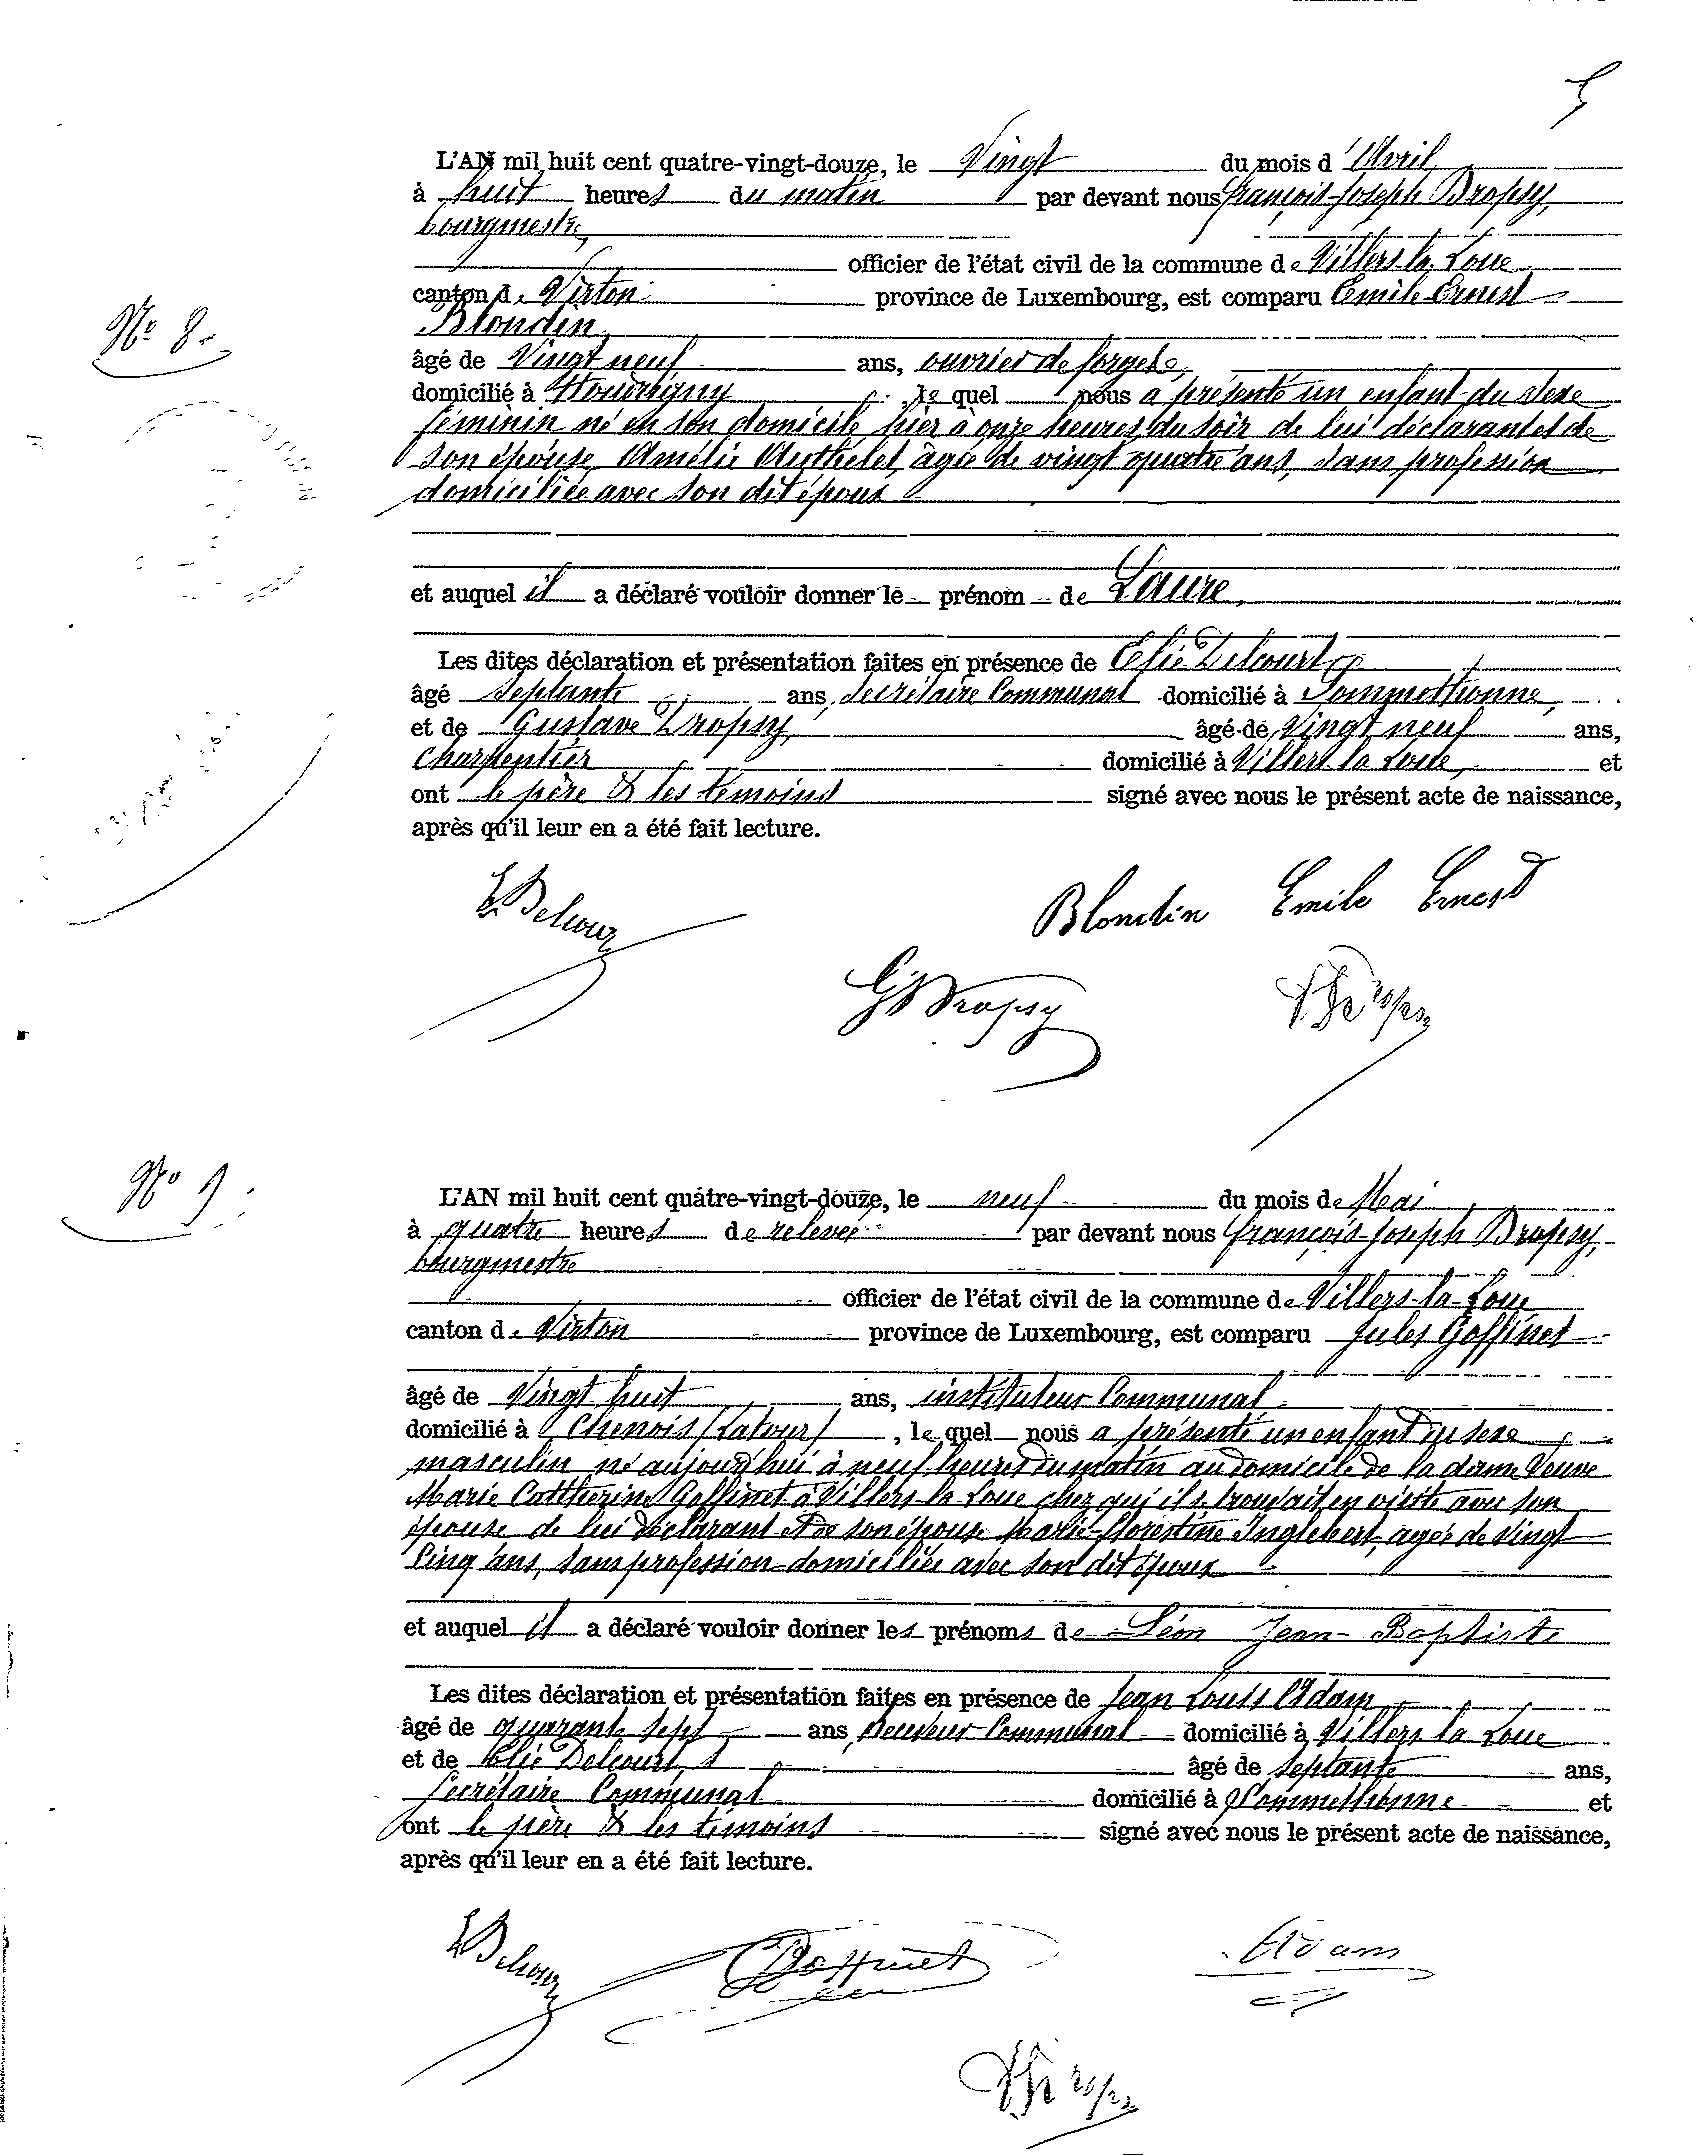 5
L'AN mil huit cent quatre-vingt-douze, le Vingt du mois d'Avril
à huit heures du matin par devant nous François-Joseph Dropsy,
bourgmestre,
officier de l'état civil de la commune de Villers-la-Loue
canton de Virton province de Luxembourg, est comparu Emile Ernest
Blondin
N° 8.
âgé de Vingt neuf ans, ouvrier de forges,
domicilié à Houdrigny le quel nous a présenté un enfant du sexe
féminin né en son domicile hier à onze heures du soir de lui déclarant et de
son épouse Amélie Authelet, âgée de vingt quatre ans, sans profession
domiciliée avec son dit époux
et auquel il a déclaré vouloir donner le prénom de Laure,
Les dites déclaration et présentation faites en présence de Elie Delcourt
âgé septante ans, Secrétaire Communal domicilié à Sommethonne,
et de Gustave Dropsy, âgé de Vingt neuf ans,
Charpentier domicilié à Villers la Loue, et
ont le père & les témoins signé avec nous le présent acte de naissance,
après qu'il leur en a été fait lecture.
E Delcour Blondin Emile Ernest
G Dropsy
N° 9.
L'AN mil huit cent quatre-vingt-douze, le neuf du mois de Mai
à quatre heures de relevée par devant nous François-Joseph Dropsy,
bourgmestre
officier de l'état civil de la commune de Villers-la-Loue
canton de Virton province de Luxembourg, est comparu Jules Goffinet
âgé de Vingt huit ans, instituteur Communal
domicilié à Chenois (Latour), le quel nous a présenté un enfant du sexe
masculin né aujourd'hui à neuf heures du matin au domicile de la dame Veuve
Marie Catherine Goffinet à Villers la Loue chez qui il se trouvait en visite avec son
épouse de lui déclarant et de son épouse Marie-Florentine Inglebert, âgée de Vingt
Cinq ans, sans profession domiciliée avec son dit époux
et auquel il a déclaré vouloir donner les prénoms de Léon Jean-Baptiste
Les dites déclaration et présentation faites en présence de Jean Louis Adam
âgé de quarante sept ans, Receveur Communal domicilié à Villers la Loue
et de Elie Delcourt, âgé de septante ans,
Secrétaire Communal domicilié à Sommethonne et
ont le père & les témoins signé avec nous le présent acte de naissance,
après qu'il leur en a été fait lecture.
E Delcour Goffinet Adam